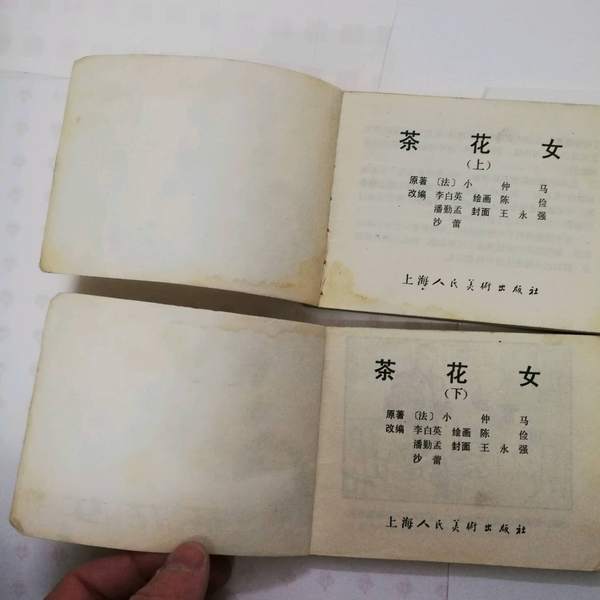 茶花女
（上）
原著 〔法〕小仲马
改编 李白英 绘画 陈俭
潘勤孟 封面 王永强
沙蕾
上海人民美術出版社
茶花女
（下）
原著 〔法〕小仲马
改编 李白英 绘画 陈俭
潘勤孟 封面 王永强
沙蕾
上海人民美術出版社